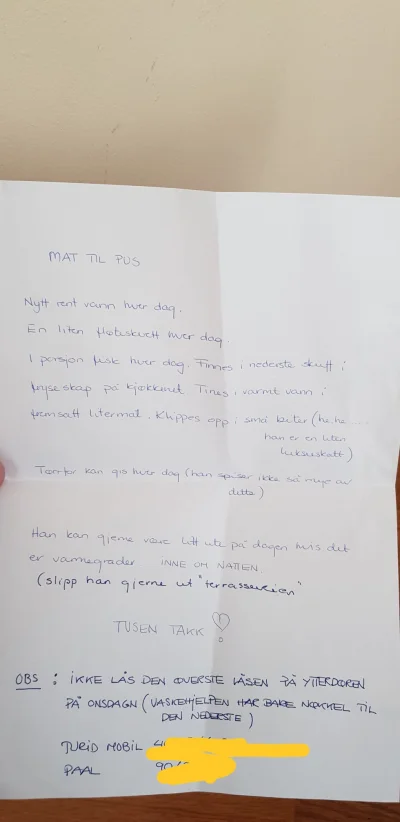 MAT TIL PUS
Nytt rent vann hver dag.
En liten fløteskvett hver dag.
1 porsjon fisk hver dag. Finnes i nederste skuff i
fryseskap på kjøkkenet. Tines i varmt vann i
fremsatt litermål. Klippes opp i små biter (he, he ....
han er en liten
luksuskatt)
Tørrfor kan gis hver dag (han spiser ikke så mye av
dette)
Han kan gjerne være litt ute på dagen hvis det
er varmegrader INNE OM NATTEN
(slipp han gjerne ut "terrasseveien"
TUSEN TAKK!
OBS : IKKE LÅS DEN ØVERSTE LÅSEN PÅ YTTERDØREN
PÅ ONSDAGN (VASKEHJELPEN HAR BARE NØKKEL TIL
DEN NEDERSTE)
TURID MOBIL
PAAL 90